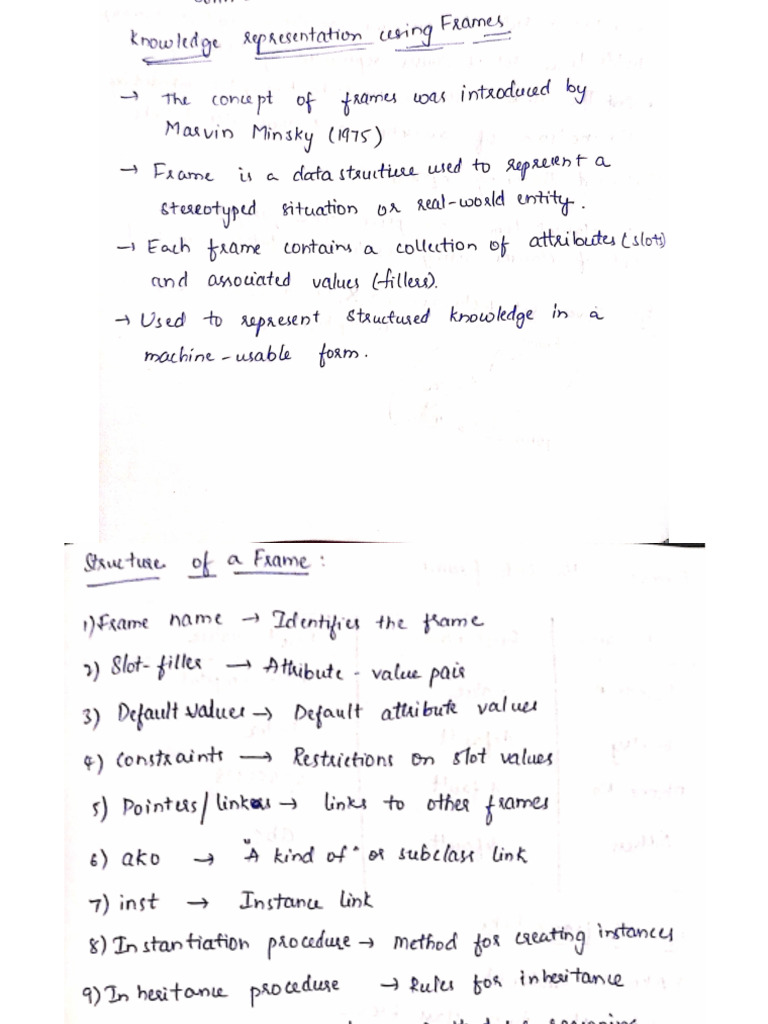 Knowledge representation using Frames
→ The concept of frames was introduced by
Marvin Minsky (1975)
→ Frame is a data structure used to represent a
stereotyped situation or real-world entity.
→ Each frame contains a collection of attributes (slots)
and associated values (fillers).
→ Used to represent structured knowledge in a
machine-usable form.
Structure of a Frame:
1) Frame name → Identifies the frame
2) Slot-filler → Attribute-value pair
3) Default values → Default attribute values
4) Constraints → Restrictions on slot values
5) Pointers/linkers → links to other frames
6) ako → "A kind of" or subclass link
7) inst → Instance link
8) Instantiation procedure → Method for creating instances
9) Inheritance procedure → Rules for inheritance